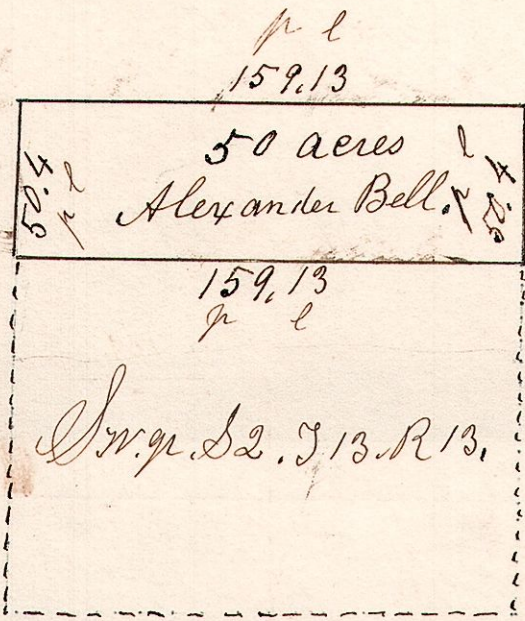 p l
159.13
50 acres
Alexander Bell.
50.4
p l
50.4
p l
159.13
p l
S.W. qr. S 2. T 13. R 13.